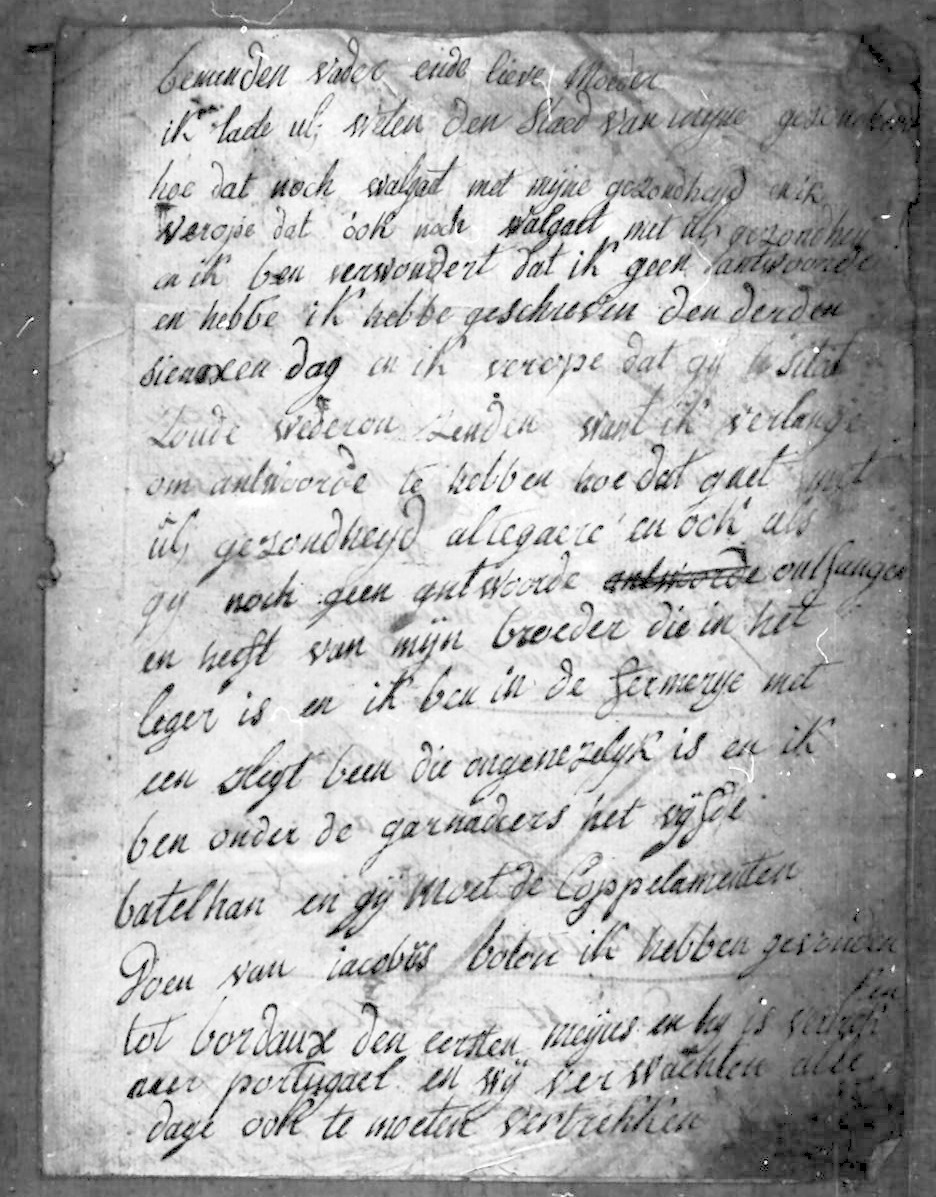 beminden vader ende lieve Moeder
ik lade ul, weten den Staed van mijne
hoe dat noch walgaet met mijne gezondheyd en ik
verope dat ook noch walgaet met ul, gezondhey
en ik ben verwondert dat ik geen antwoorde
en hebbe ik hebbe geschreven den derden
dag en ik verope dat gij
Zoude wederon Zenden want ik verlange
om antwoorde te hebben hoe dat gaet met
ul, gezondheyd altegaere en ock als
gij noch geen antwoorde antwoorde ontfangen
en heeft van mijn broeder die in het
leger is en ik ben in de fermerye met
een slegt been die ongenezelyk is en ik
ben onder de garnadiers het vijfde
batelhan en gij Moet de Coppelamenten
Doen van iacobus ik hebben gevonden
tot bordaux den eersten meijus en hy is vertrok
ken
naer portugael en wij verwachten alle
dage ook te moeten vertrekken